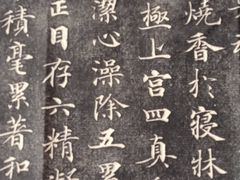 燒香於寢牀
極上宮四真
潔心澡除五累
正日存六精凝
積毫累著和